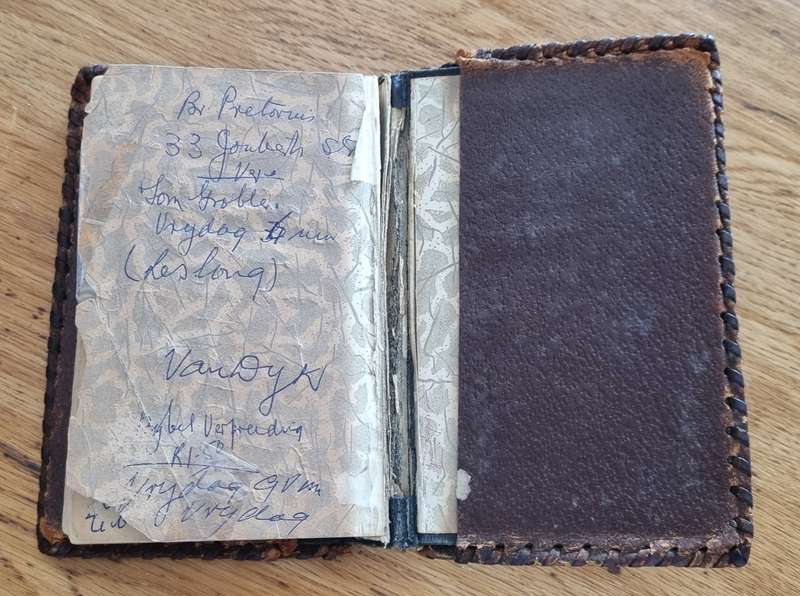 Br Pretorius
33 Joubert St
Tom Grobler.
Vrydag
(Les long)
Van Dyk
Bybel Verpreiding
Vrydag 9 Vm
Vrydag